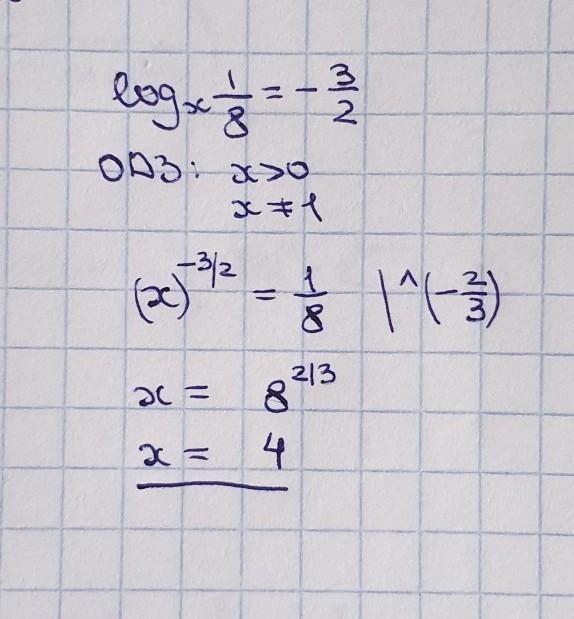 logₓ 1/8 = - 3/2
ОДЗ: x>0
x ≠ 1
(x)^-3/2 = 1/8 |^(-2/3)
x = 8^2/3
x = 4